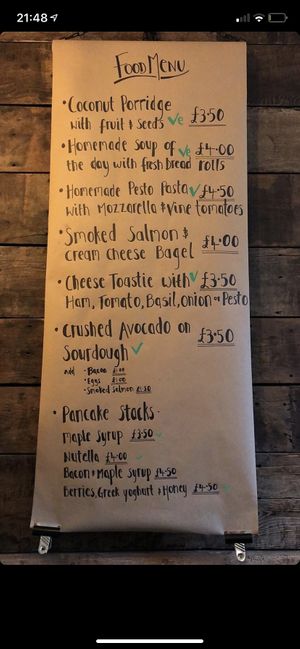 21:48
FOOD MENU
• Coconut Porridge
with fruit & seeds ve £3.50
• Homemade Soup of ve £4.00
the day with fresh bread rolls
• Homemade Pesto Pasta ✓ £4.50
with Mozzarella & vine tomatoes
• Smoked Salmon & £4.00
cream cheese Bagel
• Cheese Toastie with ✓ £3.50
Ham, Tomato, Basil, Onion or Pesto
• Crushed Avocado on £3.50
Sourdough ✓
add • Bacon
• Eggs
• Smoked Salmon
• Pancake Stacks -
Maple Syrup £3.50
Nutella £4.00
Bacon & Maple Syrup £4.50
Berries, Greek yoghurt & Honey £4.50